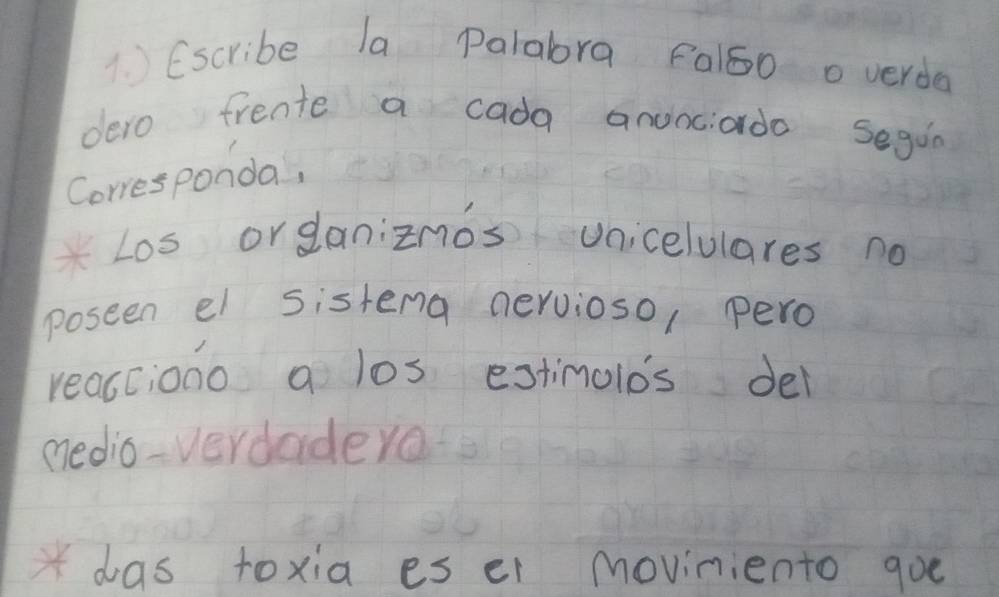 1.) Escribe la Palabra Falso o verda
dero frente a cada anunciado según
Corresponda,
* Los organizmós unicelulares no
poseen el sistema nervioso, pero
reacciónó a los estimulós del
medio - verdadero
* Las toxia es el movimiento que